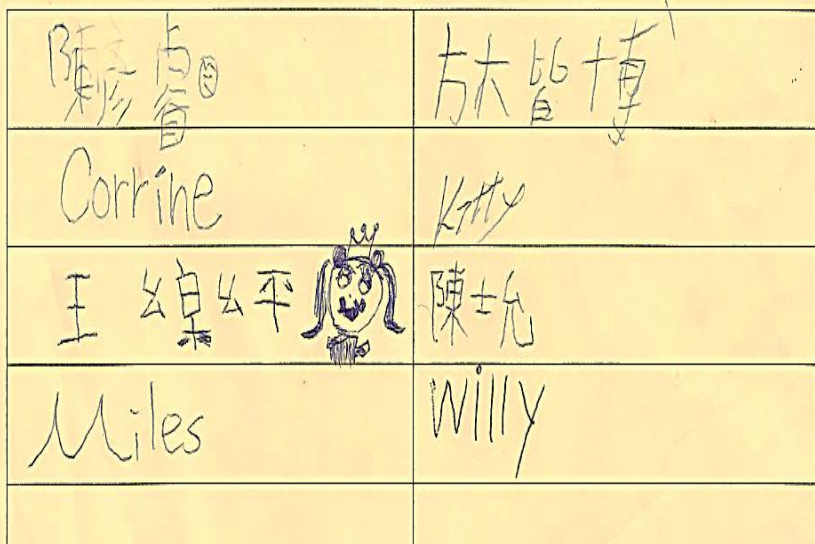 陳彥睿
皆博
Corrine
Kitty
王樂平
陳士允
Miles
Willy